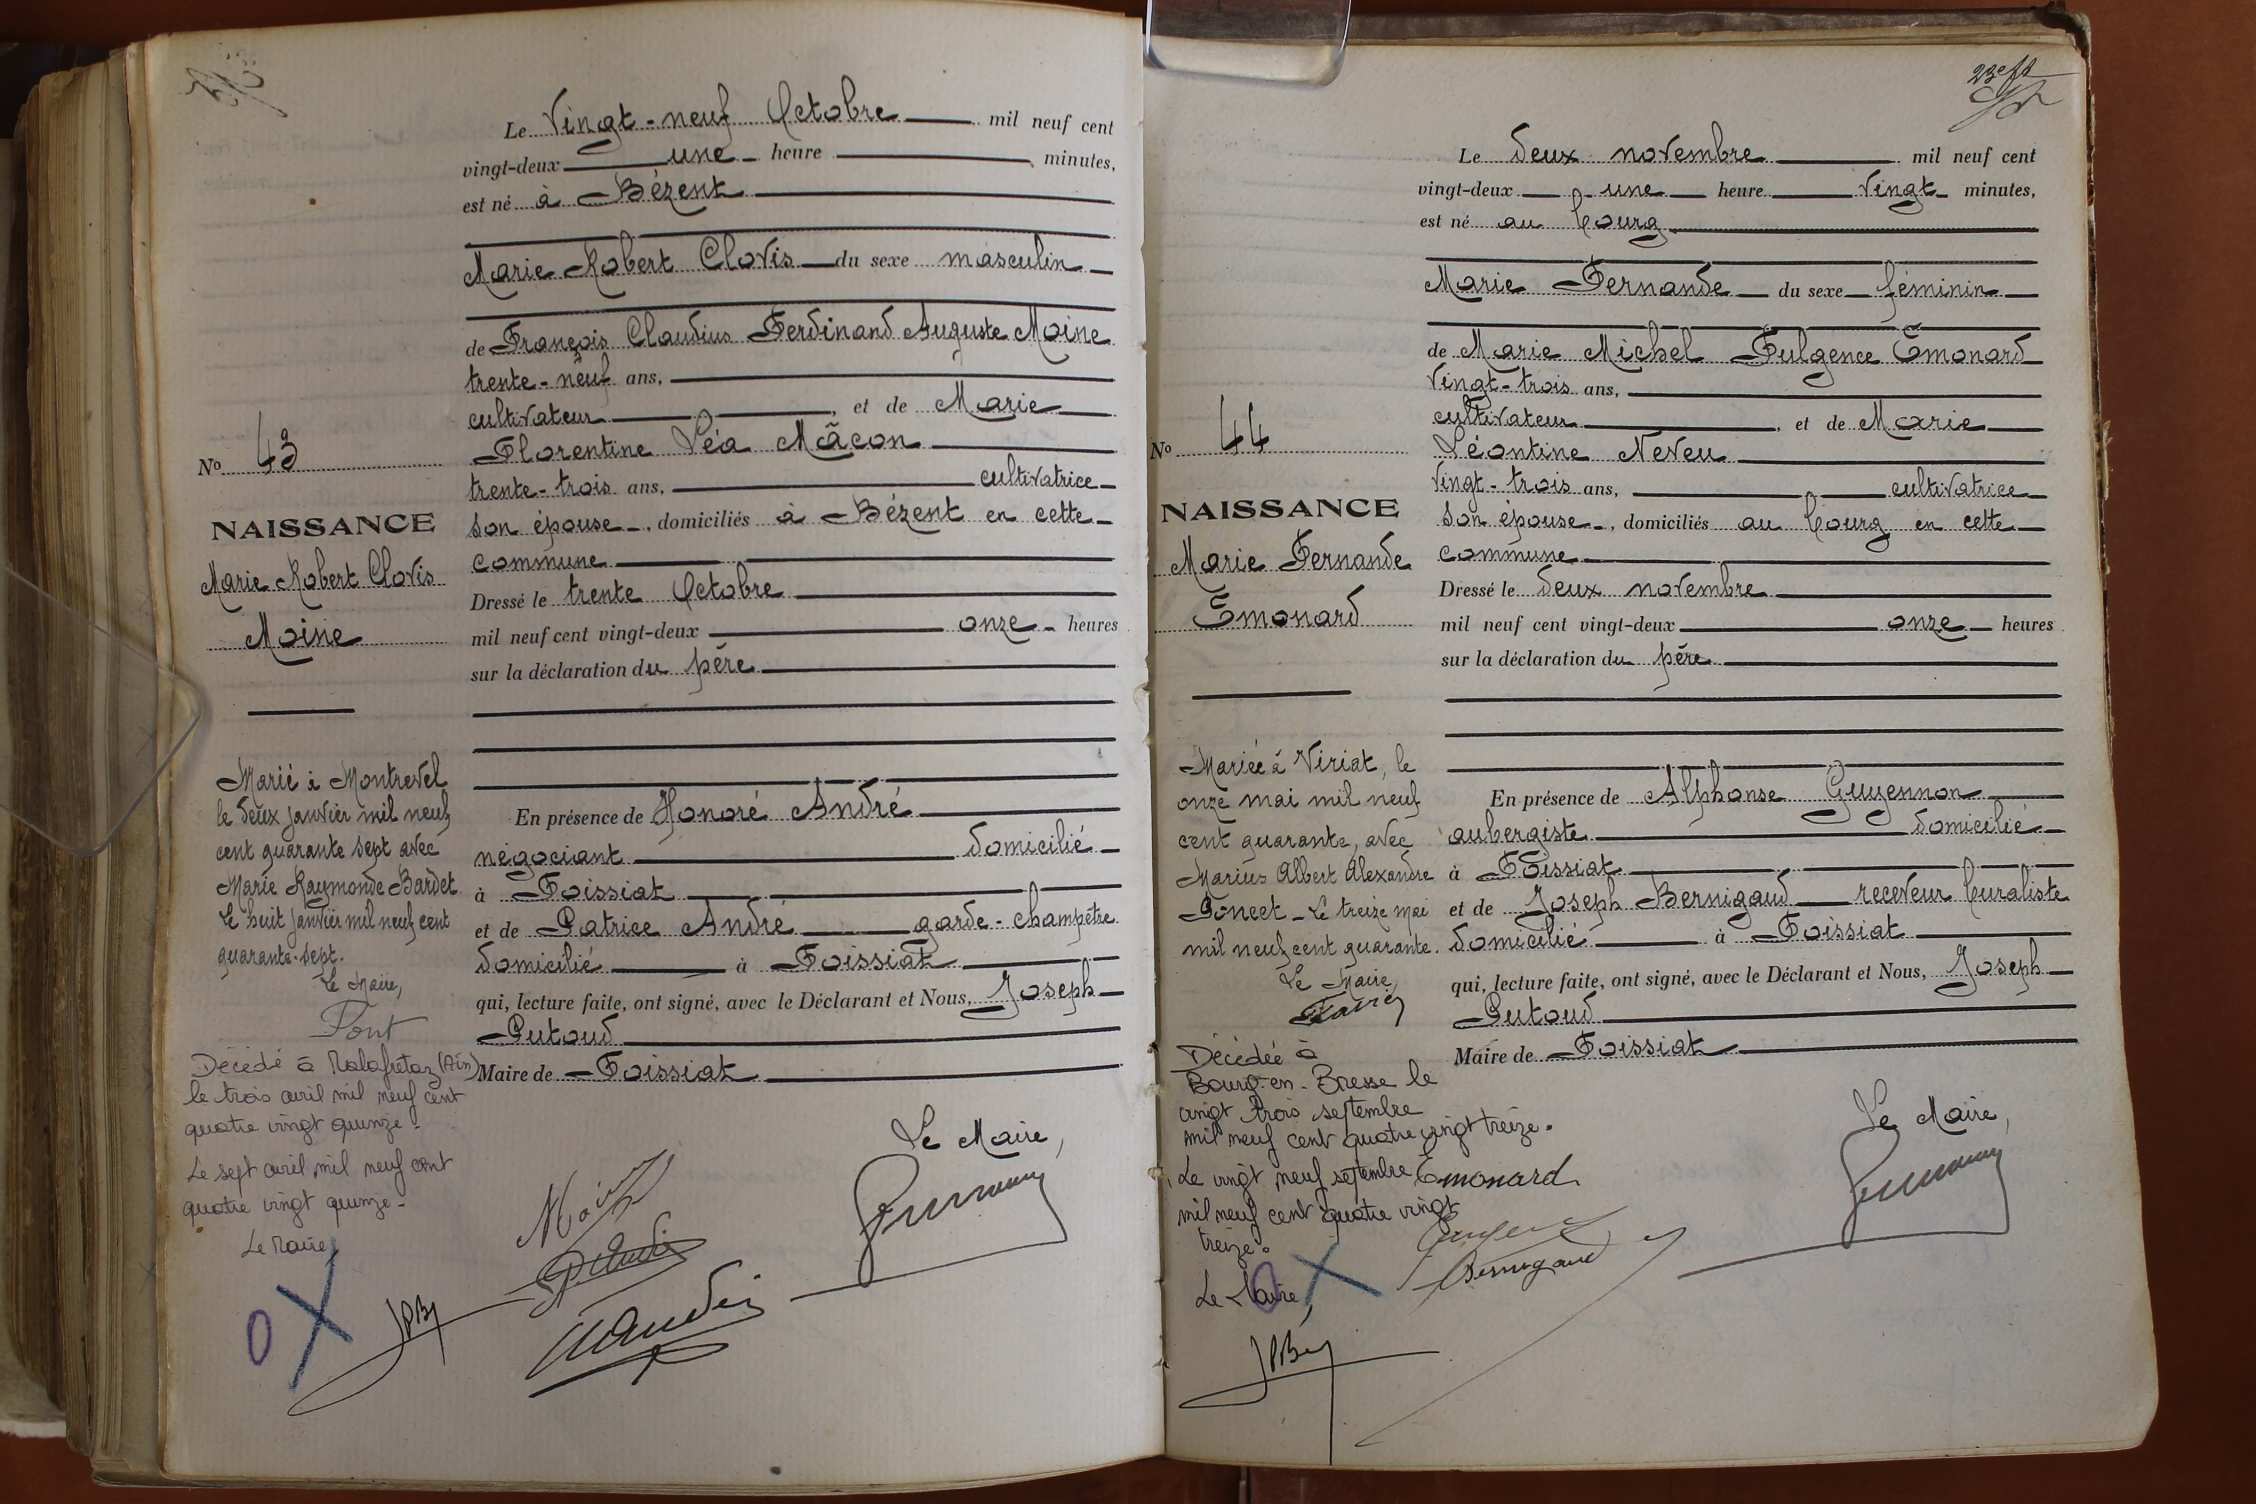 Le Vingt-neuf Octobre mil neuf cent
vingt-deux une heure minutes,
est né à Bézent
Marie Robert Clovis du sexe masculin
de François Claudius Ferdinand Auguste Moine
trente-neuf ans,
cultivateur, et de Marie
Florentine Léa Mâcon
trente-trois ans, cultivatrice
son épouse, domiciliés à Bézent en cette
commune
Dressé le trente Octobre
mil neuf cent vingt-deux onze heures
sur la déclaration du père
En présence de Honoré André
négociant domicilié
à Foissiat
et de Patrice André garde-champêtre
domicilié à Foissiat
qui, lecture faite, ont signé, avec le Déclarant et Nous, Joseph
Putoud
Maire de Foissiat
Le Maire,
No 43
NAISSANCE
Marie Robert Clovis
Moine
Marié à Montrevel
le deux janvier mil neuf
cent quarante sept avec
Marie Raymonde Bardet
Le huit janvier mil neuf cent
quarante-sept.
Le Maire,
Font
Décédé à Malafretaz (Ain)
le trois avril mil neuf cent
quatre vingt quinze.
Le sept avril mil neuf cent
quatre vingt quinze.
Le Maire,
Le deux novembre mil neuf cent
vingt-deux une heure vingt minutes,
est né au bourg
Marie Fernande du sexe féminin
de Marie Michel Fulgence Emonard
vingt-trois ans,
cultivateur, et de Marie
Léontine Neveu
vingt-trois ans, cultivatrice
son épouse, domiciliés au bourg en cette
commune
Dressé le deux novembre
mil neuf cent vingt-deux onze heures
sur la déclaration du père
En présence de Alphonse Guyennon
aubergiste domicilié
à Foissiat
et de Joseph Bernigaud receveur buraliste
domicilié à Foissiat
qui, lecture faite, ont signé, avec le Déclarant et Nous, Joseph
Putoud
Maire de Foissiat
Le Maire,
Emonard
Bernigaud
No 44
NAISSANCE
Marie Fernande
Emonard
Mariée à Viriat, le
onze mai mil neuf
cent quarante, avec
Marius Albert Alexandre
Poncet - Le treize mai
mil neuf cent quarante.
Le Maire,
Décédée à
Bourg-en-Bresse le
vingt trois septembre
mil neuf cent quatre vingt treize.
Le vingt neuf septembre
mil neuf cent quatre vingt
treize.
Le Maire,